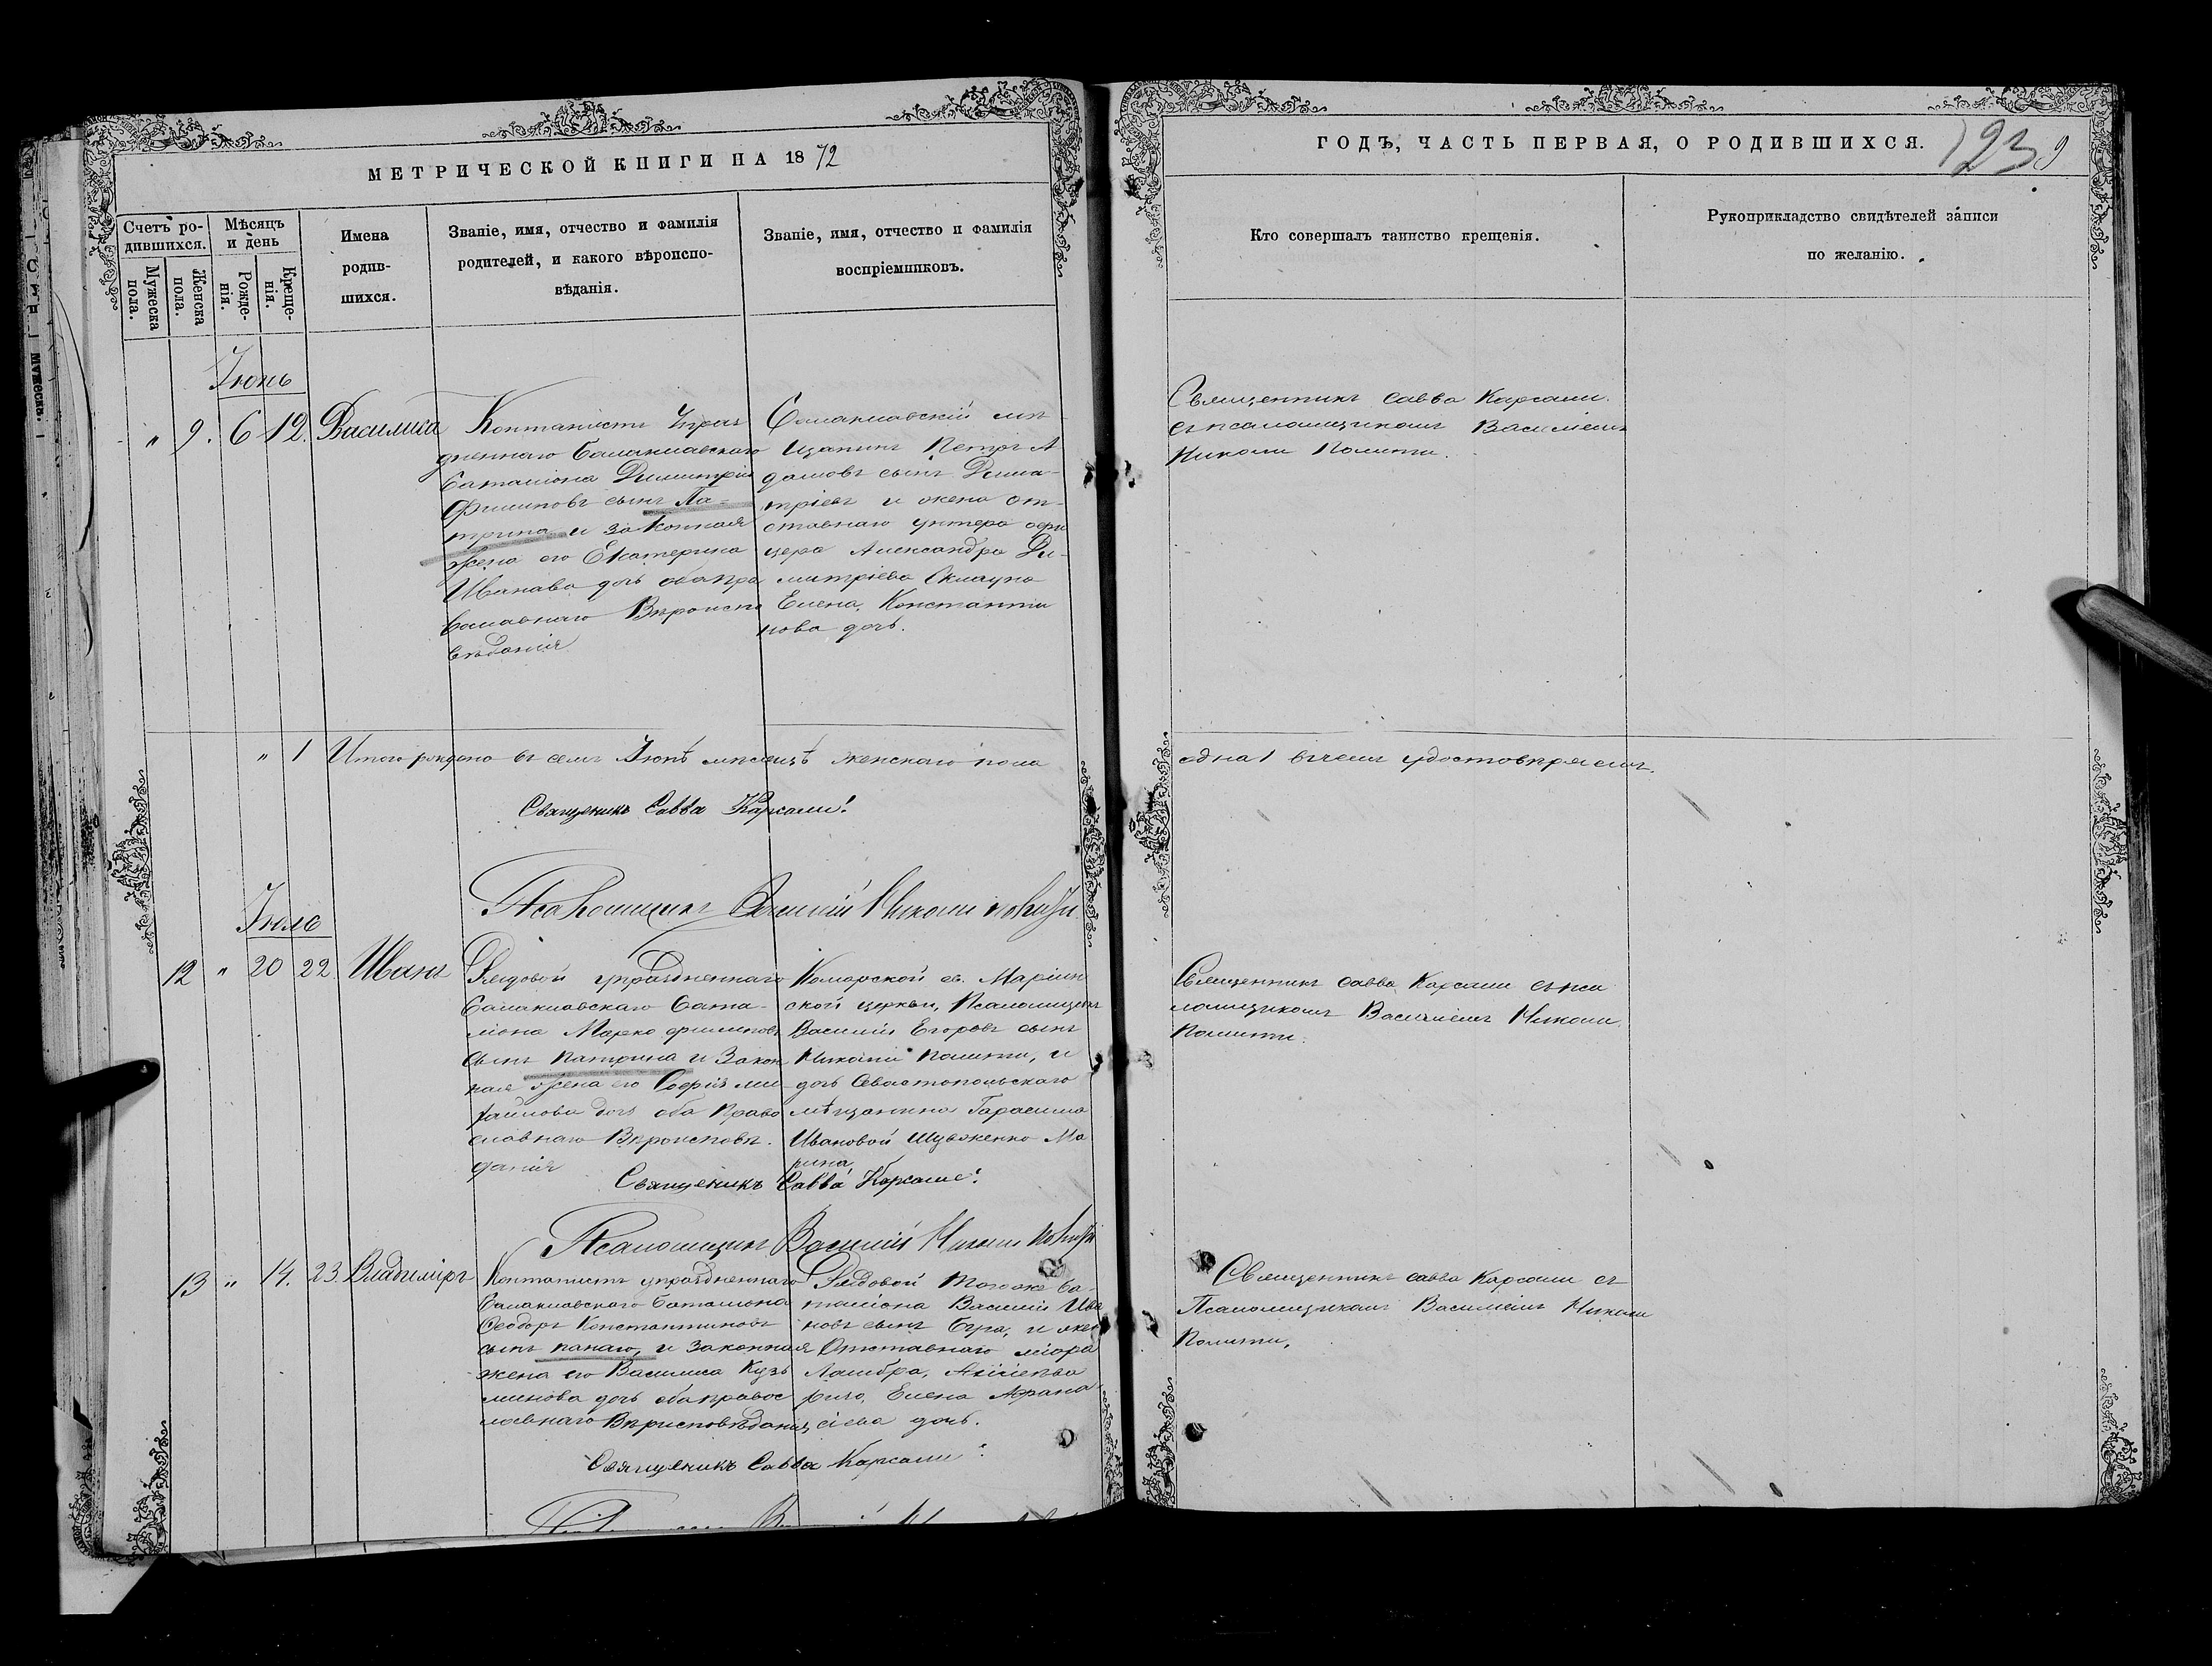 МЕТРИЧЕСКОЙ КНИГИ НА 1872
ГОДЪ, ЧАСТЬ ПЕРВАЯ, О РОДИВШИХСЯ.
123 9
Счетъ ро-
дившихся.
Мужеска
пола.
Женска
пола.
Мѣсяцъ
и день
Рожде-
нія.
Креще-
нія.
Имена
родив-
шихся.
Званіе, имя, отчество и фамилія
родителей, и какого вѣроиспо-
вѣданія.
Званіе, имя, отчество и фамилія
воспріемниковъ.
Кто совершалъ таинство крещенія.
Рукоприкладство свидѣтелей записи
по желанію.
Іюнь
" 9. 6 12. Василиса
Контанистъ Упраз
дненнаго Балаклавскаго
Баталіона Димитрій
Филиповъ сынъ Па-
трина и законная
жена его Екатерина
Иванава дочь оба пра
вославнаго Вѣроиспо
вѣданія
Балаклавскій мѣ-
щанинъ Петръ А
дамовъ сынъ Дими-
тріевъ и жена от-
ставнаго унтера офи
цера Александра Ди-
митріева Склауна
Елена, Константи
нова дочь.
Священникъ Савва Карсами.
съ псаломщикомъ Василіемъ
Николи Полити.
" 1 Итого рождено въ семъ Іюнѣ мѣсяцѣ женскаго пола
одна 1 въ чемъ удостовѣряемъ.
Священикъ Савва Карсами!
Псаломщикъ Василий Николи Полити
Іюль
12 " 20 22. Иванъ
Рядовой упраздненнаго
Балаклавскаго Бата-
ліона Марко филиповъ
сынъ Патрина и Закон
ная жена его Софія ми
хаилова дочь оба Право
славнаго Вѣроисповѣ.
данія
Комарской св. Маріин
ской церкви, Псаломщикъ
Василій Егоровъ сынъ
Николи Полити, и
дочь Севастопольскаго
мѣщанина Гарасима
Ивановой Шувженко Ма
рина
Священникъ Савва Карсами съ пса
ломщикомъ Василіемъ Николи
Полити.
Священикъ Савва Карсами!
Псаломщикъ Василий Николи Полити
13 " 14. 23. Владиміръ
Контанистъ упраздненнаго
Балаклавскаго Баталіона
Ѳеодоръ Константиновъ
сынъ панаго, и законная
жена его Василиса Кузь
минова дочь оба правос
лавнаго Вѣрисповѣданія,
Рядовой тогоже ба-
таліона Василій Ива
новъ сынъ Бура, и жена
Отставнаго
Елена Афана
сіева дочь.
Священникъ савва Карсами съ
Псаломщикомъ Василіемъ Николи
Полити,
Священикъ Савва Карсами!